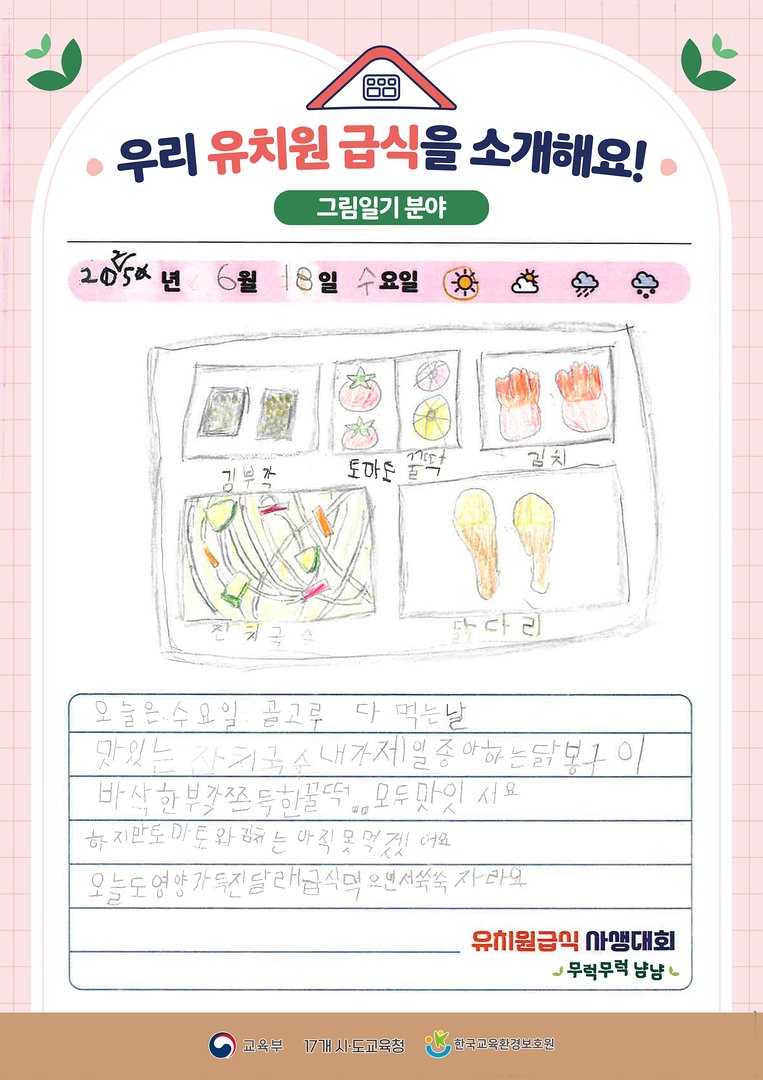 우리 유치원 급식을 소개해요!
그림일기 분야
2025년 6월 18일 수요일
김부각 토마토 꿀떡 김치
잔치국수 닭다리
오늘은 수요일. 골고루 다 먹는날
맛있는 잔치국수 내가제일좋아하는닭봉구이
바삭한부각쫀득한꿀떡.. 모두맛잇서요
하지만토마토와김치는 아직못먹겠어요
오늘도영양가득진달래급식먹으면서쑥쑥 자라요
유치원급식 사생대회
무럭무럭 냠냠
교육부 17개 시·도교육청 한국교육환경보호원